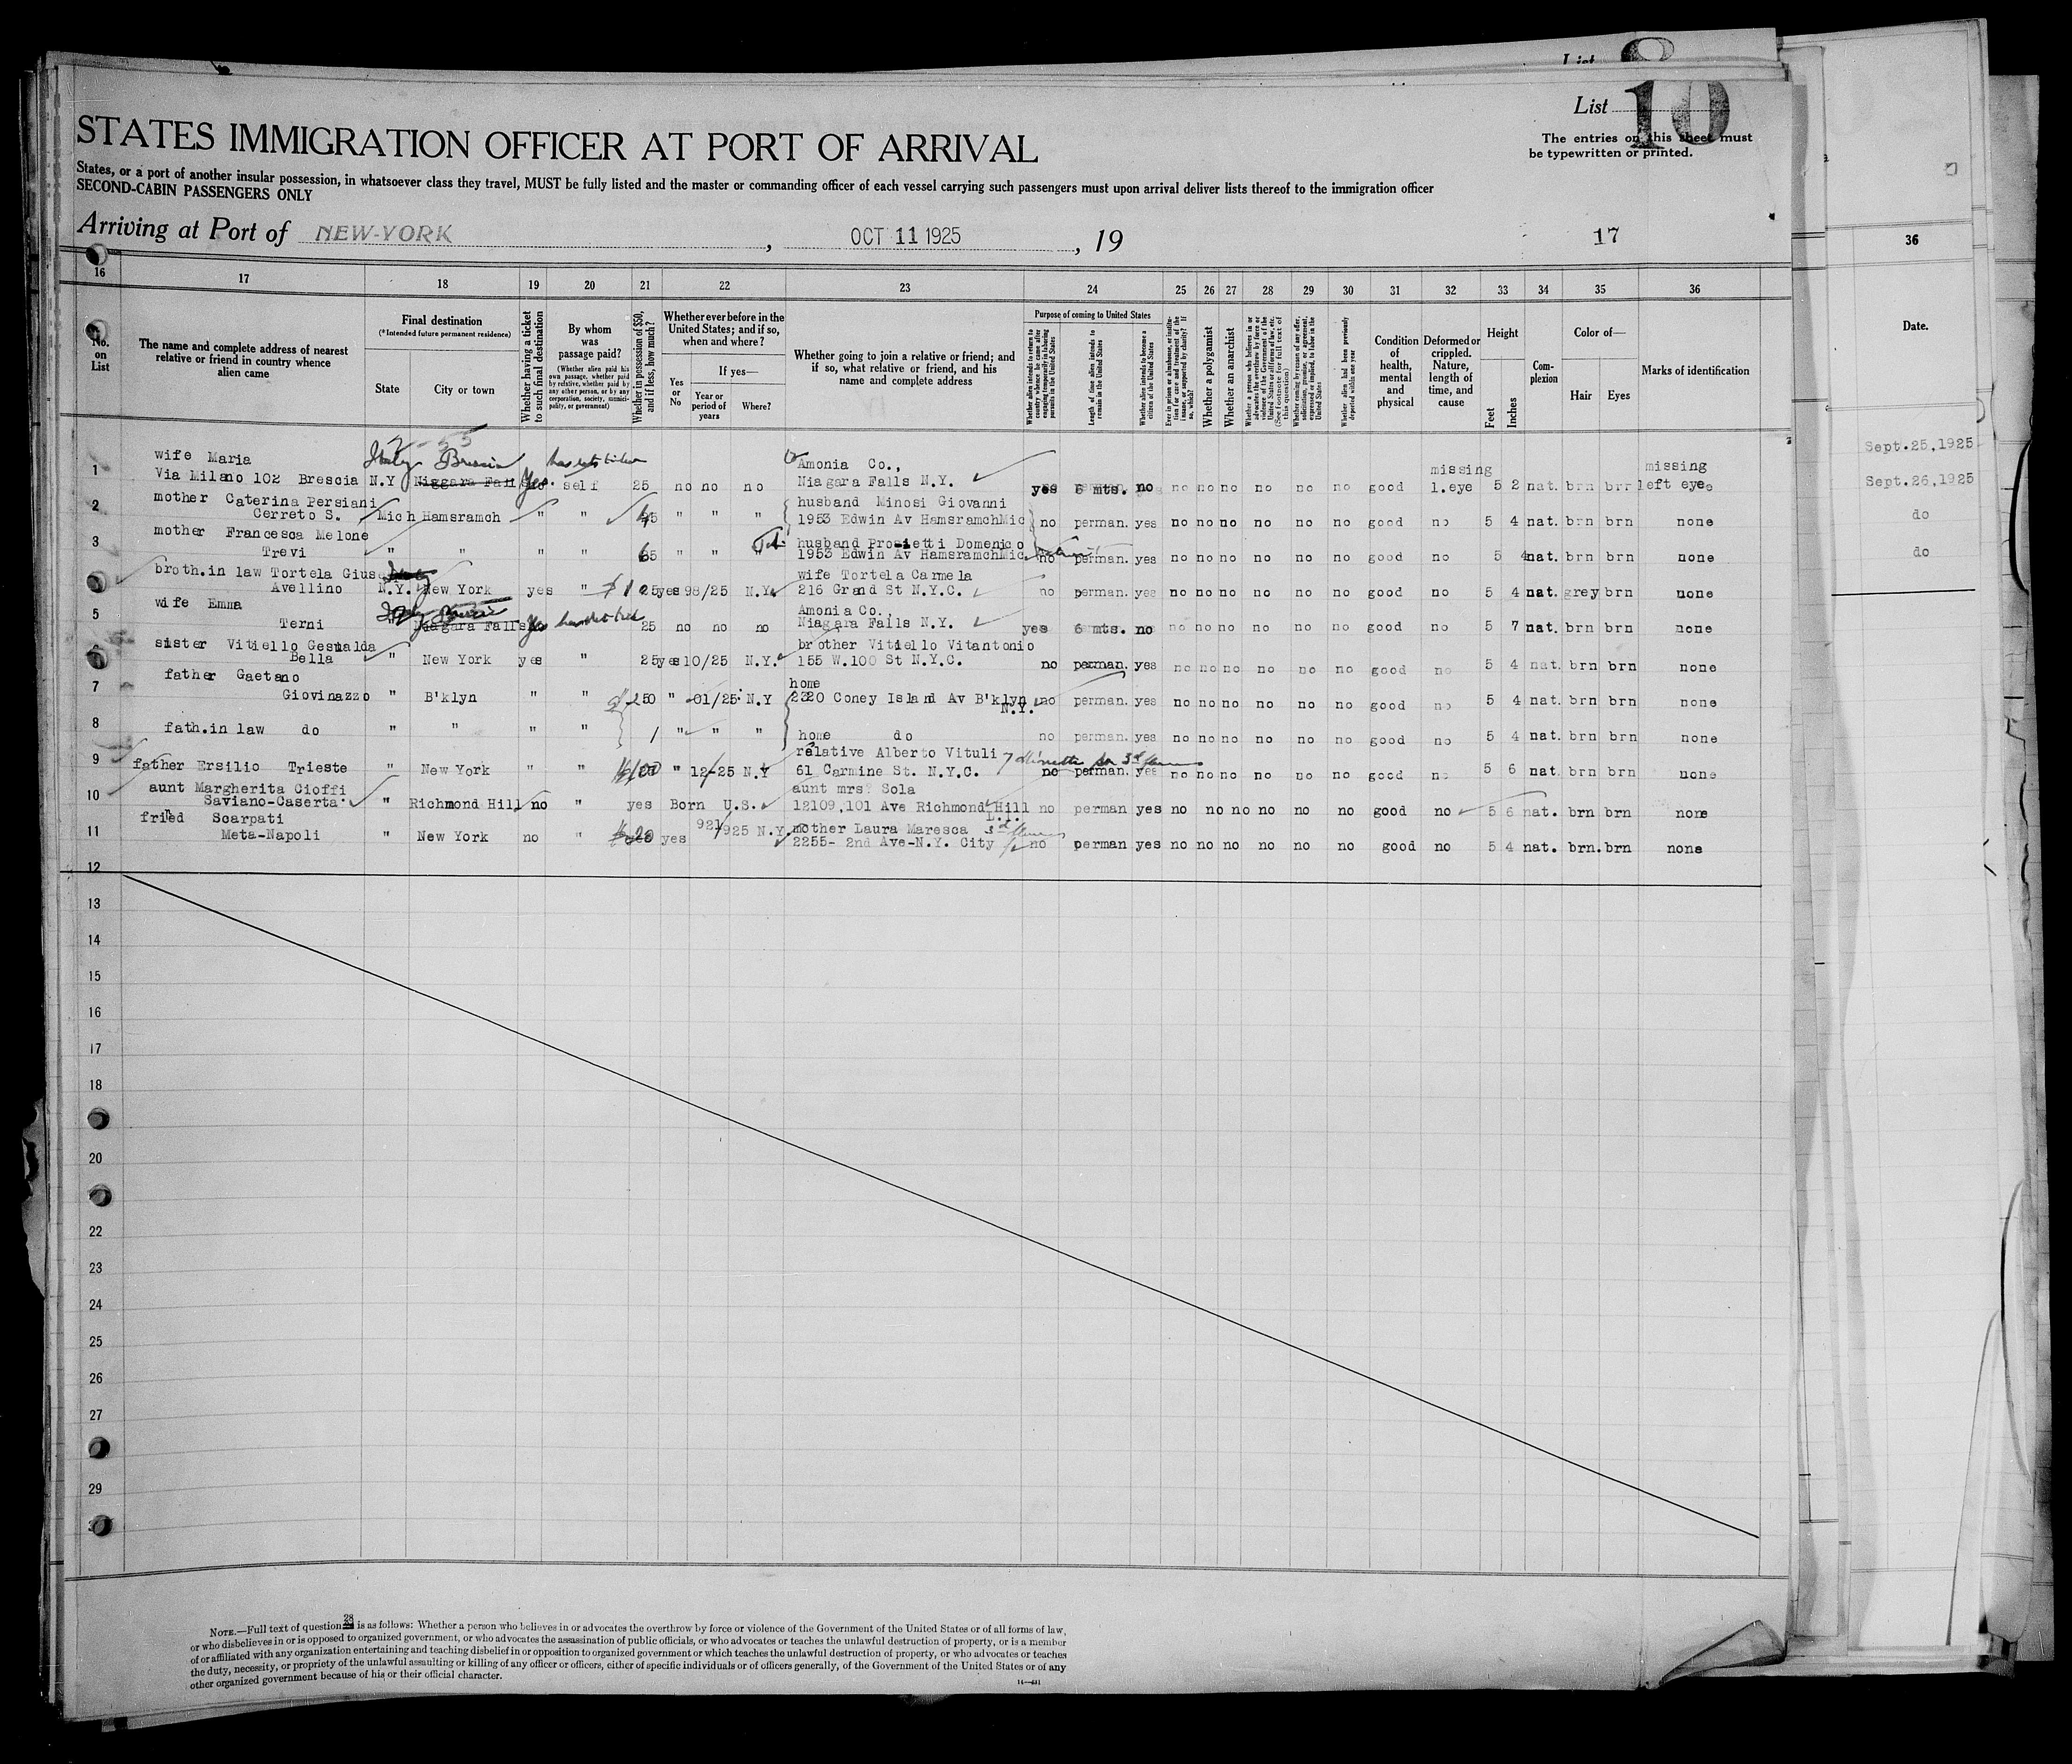 List 10
The entries on this sheet must
be typewritten or printed.
STATES IMMIGRATION OFFICER AT PORT OF ARRIVAL
States, or a port of another insular possession, in whatsoever class they travel, MUST be fully listed and the master or commanding officer of each vessel carrying such passengers must upon arrival deliver lists thereof to the immigration officer
SECOND-CABIN PASSENGERS ONLY
Arriving at Port of NEW-YORK, OCT 11 1925, 19
17
16 17 18 19 20 21 22 23 24 25 26 27 28 29 30 31 32 33 34 35 36
No. on List
The name and complete address of nearest relative or friend in country whence alien came
Final destination
(*Intended future permanent residence)
State
City or town
Whether having a ticket to such final destination
By whom was passage paid?
(Whether alien paid his own passage, whether paid by relative, whether paid by any other person, or by any corporation, society, municipality, or government)
Whether in possession of $50, and if less, how much?
Whether ever before in the United States; and if so, when and where?
Yes or No
If yes—
Year or period of years
Where?
Whether going to join a relative or friend; and if so, what relative or friend, and his name and complete address
Purpose of coming to United States
Whether alien intends to return to country whence he came after engaging temporarily in laboring pursuits in the United States
Length of time alien intends to remain in the United States
Whether alien intends to become a citizen of the United States
Ever in prison or almshouse, or institution for care and treatment of the insane, or supported by charity? If so, which?
Whether a polygamist
Whether an anarchist
Whether a person who believes in or advocates the overthrow by force or violence of the Government of the United States or all forms of law, etc. (See footnote for full text of this question)
Whether coming by reason of any offer, solicitation, promise, or agreement, expressed or implied, to labor in the United States
Whether alien had been previously deported within one year
Condition of health, mental and physical
Deformed or crippled. Nature, length of time, and cause
Height
Feet
Inches
Complexion
Color of—
Hair
Eyes
Marks of identification
wife Maria Italy Brescia Amonia Co., missing missing
1 Via Milano 102 Brescia N.Y Niagara Fall Yes. self 25 no no no Niagara Falls N.Y. yes 6 mts. no no no no no no no good l.eye 5 2 nat. brn brn left eye
mother Caterina Persiani husband Minosi Giovanni
2 Cerreto S. Mich Hamsramch " " 45 " " " 1953 Edwin Av HamsramchMic no perman. yes no no no no no no good no 5 4 nat. brn brn none
mother Francesca Melone husband Prosietti Domenico
3 Trevi " " " " 65 " " " 1953 Edwin Av HamsramchMic no perman. yes no no no no no no good no 5 4 nat. brn brn none
broth.in law Tortela Gius wife Tortela Carmela
Avellino N.Y. New York yes " 25 yes 98/25 N.Y. 216 Grand St N.Y.C. no perman. yes no no no no no no good no 5 4 nat. grey brn none
wife Emma Amonia Co.,
5 Terni Niagara Falls Yes 25 no no no Niagara Falls N.Y. yes 6 mts. no no no no no no no good no 5 7 nat. brn brn none
sister Vitiello Gesualda brother Vitiello Vitantonio
Bella " New York yes " 25 yes 10/25 N.Y. 155 W.100 St N.Y.C. no perman. yes no no no no no no good no 5 4 nat. brn brn none
father Gaetano home
7 Giovinazzo " B'klyn " " 250 " 01/25 N.Y 2320 Coney Island Av B'klyn N.Y. no perman. yes no no no no no no good no 5 4 nat. brn brn none
8 fath.in law do " " " " " " " home do no perman. yes no no no no no no good no 5 4 nat. brn brn none
relative Alberto Vituli
9 father Ersilio Trieste " New York " " " 12-25 N.Y 61 Carmine St. N.Y.C. no perman. yes no no no no no no good no 5 6 nat. brn brn none
aunt Margherita Cioffi aunt mrs. Sola
10 Saviano-Caserta " Richmond Hill no " yes Born U.S. 12109,101 Ave Richmond Hill L.I. no perman yes no no no no no no good no 5 6 nat. brn brn none
fried Scarpati mother Laura Maresca
11 Meta-Napoli " New York no " 20 yes 921/925 N.Y. 2255- 2nd Ave-N.Y. City no perman yes no no no no no no good no 5 4 nat. brn. brn none
12
13
14
15
16
17
18
20
22
23
24
25
26
27
29
NOTE.—Full text of question 28 is as follows: Whether a person who believes in or advocates the overthrow by force or violence of the Government of the United States or of all forms of law,
or who disbelieves in or is opposed to organized government, or who advocates the assassination of public officials, or who advocates or teaches the unlawful destruction of property, or is a member
of or affiliated with any organization entertaining and teaching disbelief in or opposition to organized government or which teaches the unlawful destruction of property, or who advocates or teaches
the duty, necessity, or propriety of the unlawful assaulting or killing of any officer or officers, either of specific individuals or of officers generally, of the Government of the United States or of any
other organized government because of his or their official character.
36
Date.
Sept.25,1925
Sept.26,1925
do
do